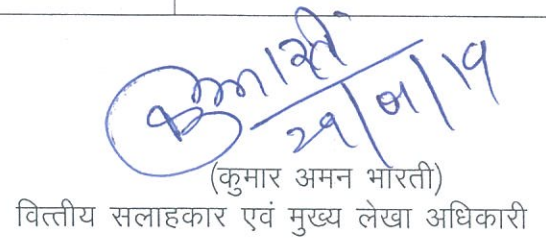 (कुमार अमन भारती)
वित्तीय सलाहकार एवं मुख्य लेखा अधिकारी